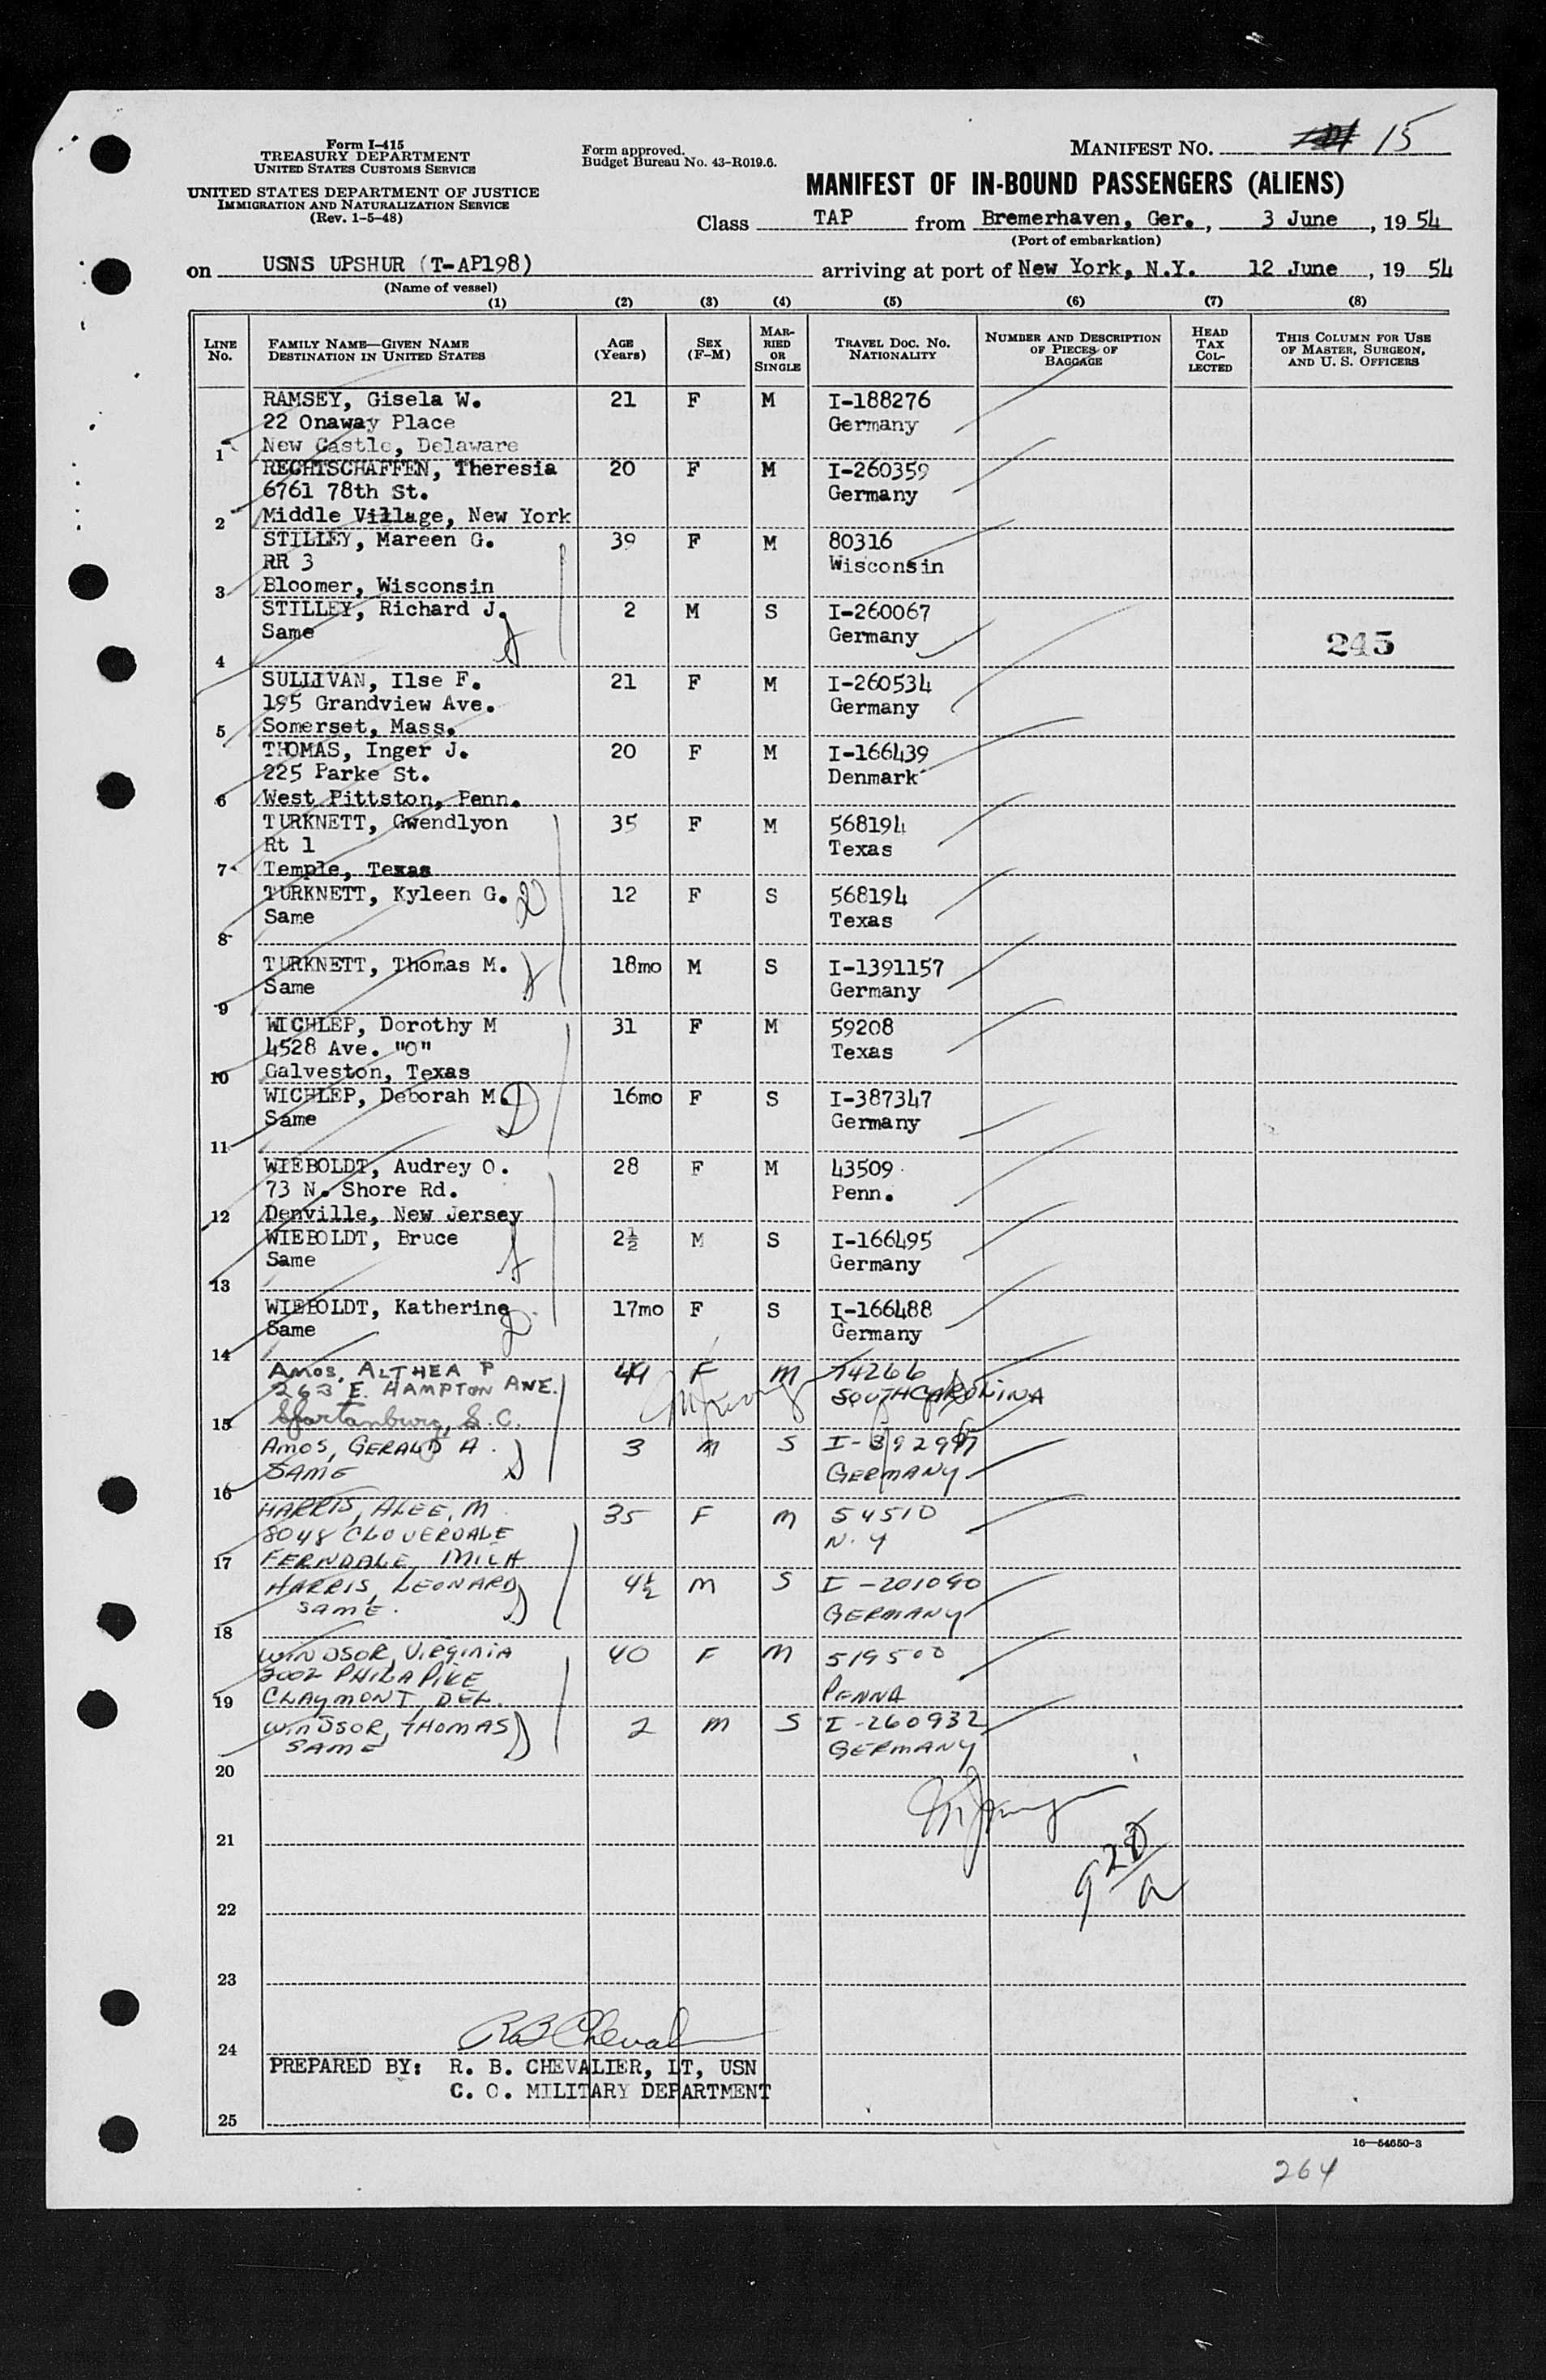 Form I-415
TREASURY DEPARTMENT
UNITED STATES CUSTOMS SERVICE
UNITED STATES DEPARTMENT OF JUSTICE
IMMIGRATION AND NATURALIZATION SERVICE
(Rev. 1-5-48)
Form approved.
Budget Bureau No. 43-R019.6.
MANIFEST NO. 15
MANIFEST OF IN-BOUND PASSENGERS (ALIENS)
Class TAP from Bremerhaven, Ger., 3 June, 1954
(Port of embarkation)
on USNS UPSHUR (T-AP198) arriving at port of New York, N.Y. 12 June, 1954
(Name of vessel)
(1) (2) (3) (4) (5) (6) (7) (8)
LINE No. FAMILY NAME—GIVEN NAME DESTINATION IN UNITED STATES AGE (Years) SEX (F-M) MARRIED OR SINGLE TRAVEL DOC. NO. NATIONALITY NUMBER AND DESCRIPTION OF PIECES OF BAGGAGE HEAD TAX COLLECTED THIS COLUMN FOR USE OF MASTER, SURGEON, AND U. S. OFFICERS
RAMSEY, Gisela W. 21 F M I-188276
22 Onaway Place Germany
1 New Castle, Delaware
RECHTSCHAFFEN, Theresia 20 F M I-260359
6761 78th St. Germany
2 Middle Village, New York
STILLEY, Mareen G. 39 F M 80316
RR 3 Wisconsin
3 Bloomer, Wisconsin
STILLEY, Richard J. 2 M S I-260067
Same Germany 245
4
SULLIVAN, Ilse F. 21 F M I-260534
195 Grandview Ave. Germany
5 Somerset, Mass.
THOMAS, Inger J. 20 F M I-166439
225 Parke St. Denmark
6 West Pittston, Penn.
TURKNETT, Gwendlyon 35 F M 568194
Rt 1 Texas
7 Temple, Texas
TURKNETT, Kyleen G. 12 F S 568194
Same Texas
8
TURKNETT, Thomas M. 18mo M S I-1391157
Same Germany
9
WICHLEP, Dorothy M 31 F M 59208
4528 Ave. "O" Texas
10 Galveston, Texas
WICHLEP, Deborah M. 16mo F S I-387347
Same Germany
11
WIEBOLDT, Audrey O. 28 F M 43509
73 N. Shore Rd. Penn.
12 Denville, New Jersey
WIEBOLDT, Bruce 2½ M S I-166495
Same Germany
13
WIEBOLDT, Katherine 17mo F S I-166488
Same Germany
14
AMOS, ALTHEA P 49 F M 74266
263 E. HAMPTON AVE. SOUTH CAROLINA
15 Spartanburg, S.C.
AMOS, GERALD A. 3 M S
SAME GERMANY
16
HARRIS, ALEE, M 35 F M 54510
8048 CLOVERDALE N.Y
17 FERNDALE MICH
HARRIS, LEONARD 4½ M S I-201090
SAME. GERMANY
18
WINDSOR, VIRGINIA 40 F M 519500
2002 PHILA PIKE PENNA
19 CLAYMONT, DEL.
WINDSOR, THOMAS 2 M S I-260932
SAME GERMANY
20
21
22
23
24
PREPARED BY: R. B. CHEVALIER, LT, USN
C. O. MILITARY DEPARTMENT
25
16—54650-3
264